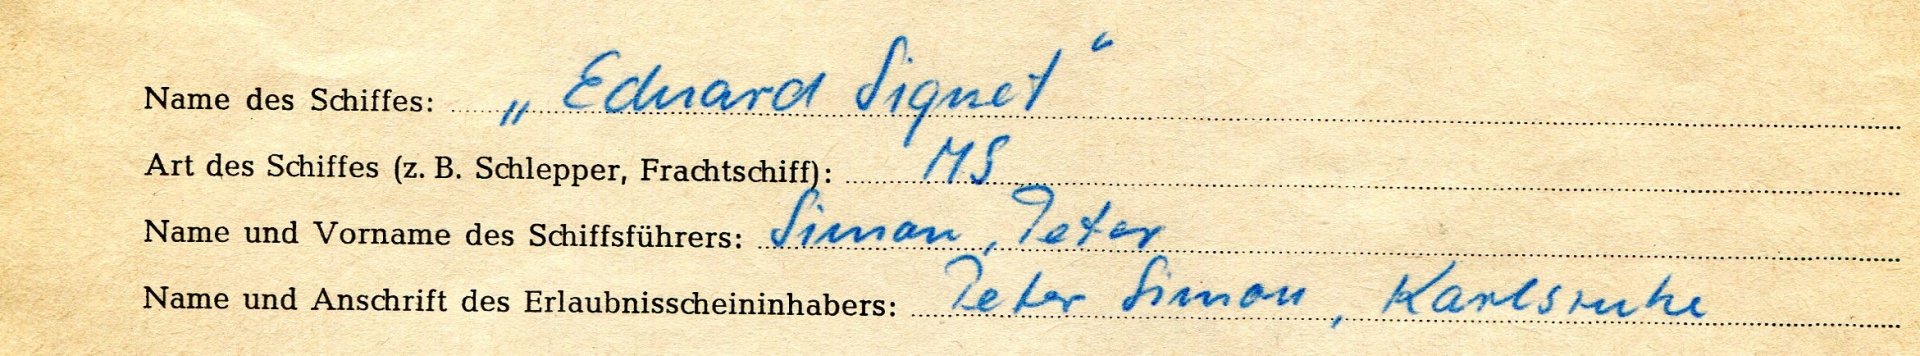 Name des Schiffes: „Eduard Signet“
Art des Schiffes (z. B. Schlepper, Frachtschiff): MS
Name und Vorname des Schiffsführers: Simon, Peter
Name und Anschrift des Erlaubnisscheininhabers: Peter Simon, Karlsruhe